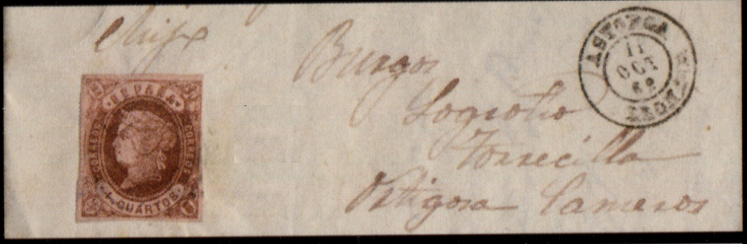 ESPAÑA
CORREOS
CORREOS
4 CUARTOS
Burgos
Logroño
Torrecilla
Ortigosa Cameros
ASTORGA
11
OCT
62
LEON